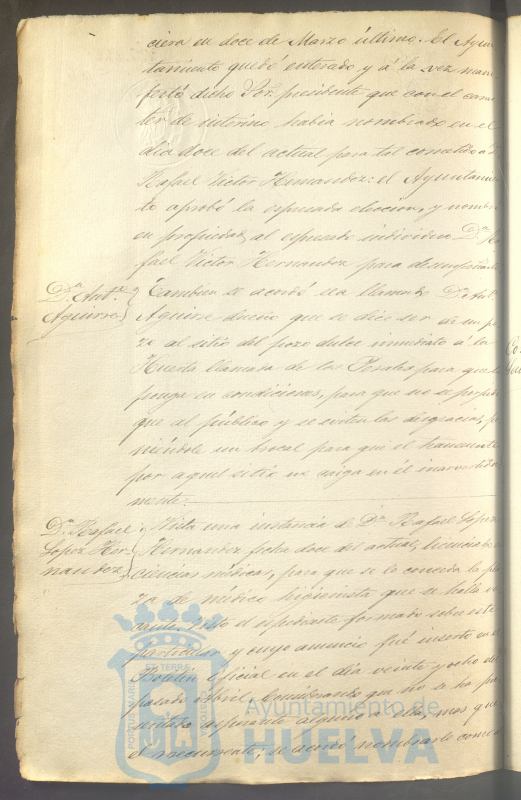 ciera en doce de Marzo último. El Ayun
tamiento quedó enterado, y á la vez mani
festó dicho Sor. presidente que con el carac
ter de interino habia nombrado en el
dia doce del actual para tal cometido a D.
Rafael Victor Hernandez: el Ayuntamien
to aprobó la espresada eleccion, y nombró
en propiedad al espresado individuo Dn. Ra
fael Victor Hernandez para desempeñarla
Dn. Antº.
Aguirre
Tambien se acordó sea llamado Dn. Antº.
Aguirre dueño que se dice ser de un po
zo al sitio del pozo dulce inmediato á la
Huerta llamada de los Perales para que lo
ponga en condiciones, para que no se perjudi
que al público y se eviten las desgracias, po
niéndole un brocal para que el transeunte
por aquel sitio no caiga en él inadvertida
mente.
Dn. Rafael
Lopez Her
nandez
Vista una instancia de Dn. Rafael Lopez
Hernandez fecha doce del actual, licenciado en
ciencias médicas, para que se le conceda la pla
za de médico higienista que se halla va
cante. Visto el espediente formado sobre este
particular y cuyo anuncio fué inserto en el
Boletin oficial en el dia veinte y ocho del
pasado Abril; Considerando que no se ha pre
sentado aspirante alguno a ella, mas que
el recurrente; se acordó nombrarle como
PORTUS MARIS
ET TERRE
CUSTODIA
Ayuntamiento de
HUELVA